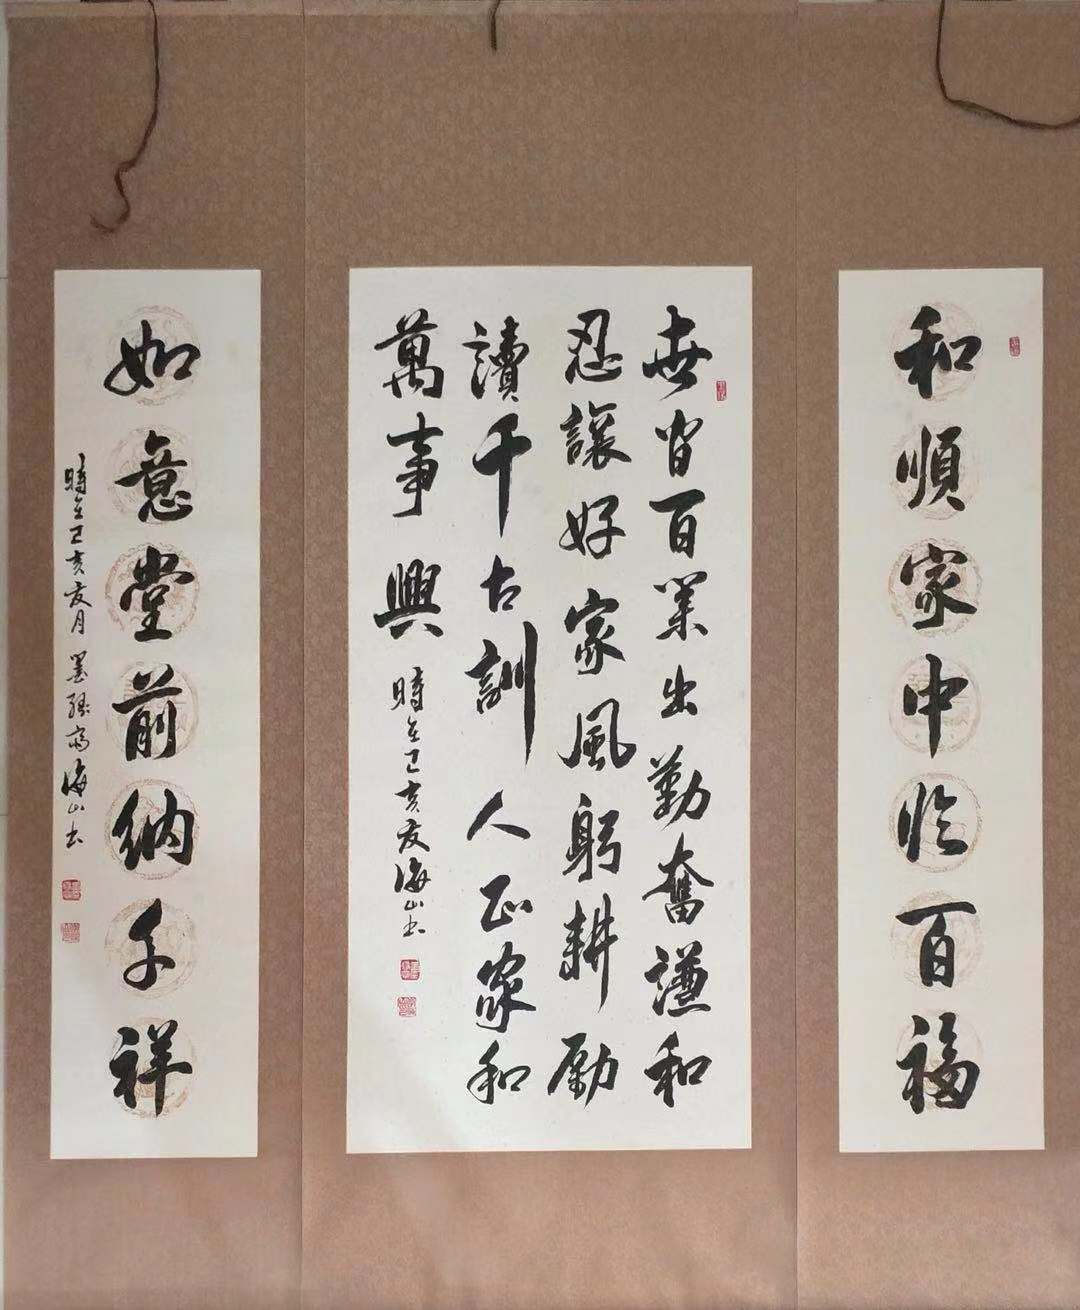 和順家中臨百福
世皆百業出勤奮謙和
忍讓好家風躬耕勵
讀千古訓人正家和
萬事興
時在己亥夏海山书
如意堂前納千祥
時在己亥夏月墨緣齋海山书